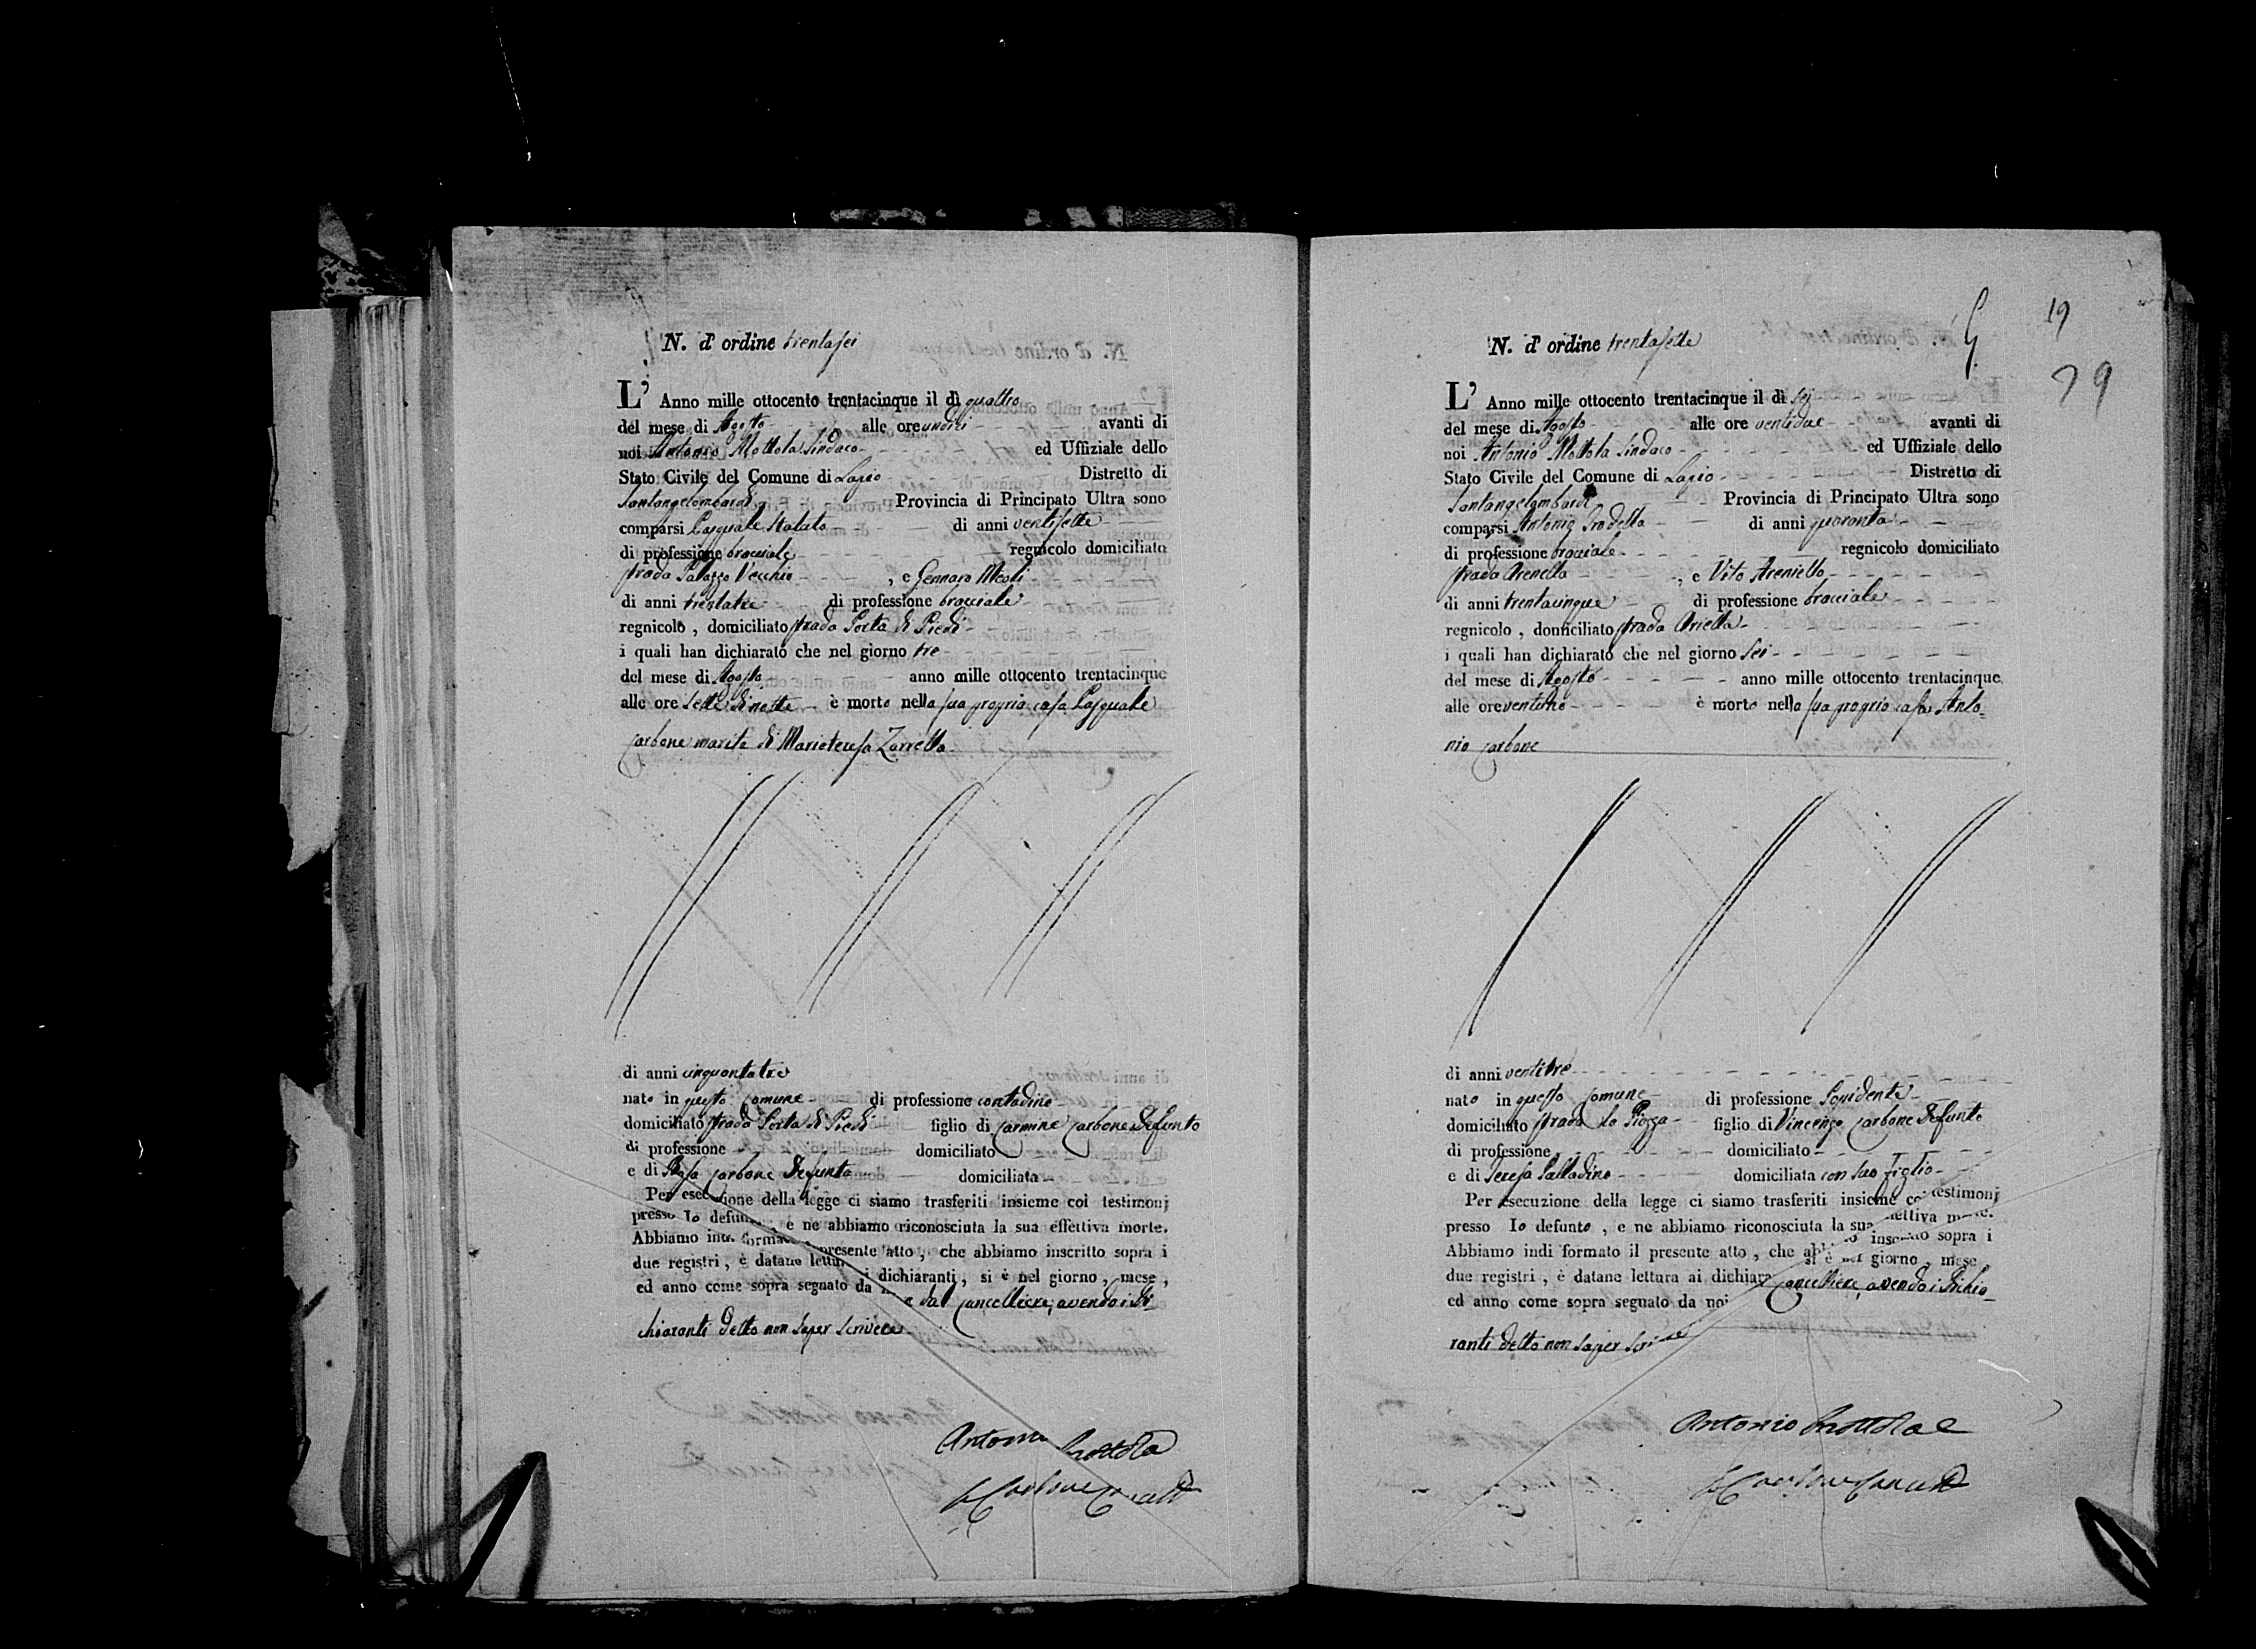 N. d' ordine trentasei
L' Anno mille ottocento trentacinque il dì quattro
del mese di Agosto alle ore undici avanti di
noi Antonio Mottola Sindaco ed Uffiziale dello
Stato Civile del Comune di Lapio Distretto di
Santangelombardi Provincia di Principato Ultra sono
comparsi Pasquale di anni ventisette
di professione bracciale regnicolo domiciliato
strada Palazzo Vecchio , e Gennaro
di anni trentatre di professione bracciale
regnicolo , domiciliato strada Porta di Piedi
i quali han dichiarato che nel giorno tre
del mese di Agosto anno mille ottocento trentacinque
alle ore sette di notte è morto nella sua propria casa Pasquale
Carbone marito di Mariateresa Zarrella
di anni cinquantatre
nato in questo Comune di professione contadino
domiciliato strada Porta di Piedi figlio di Carmine Carbone Defunto
di professione domiciliato
e di Rosa Carbone Defunta domiciliata
Per esecuzione della legge ci siamo trasferiti insieme coi testimonj
presso lo defunto , e ne abbiamo riconosciuta la sua effettiva morte.
Abbiamo indi formato il presente atto , che abbiamo inscritto sopra i
due registri , è datane lettura ai dichiaranti , si è nel giorno , mese ,
ed anno come sopra segnato da noi e dal Cancelliere, avendo i di
chiaranti detto non saper scrivere
Antonio Mottola
Carbone Canc
19
79
N. d' ordine trentasette
L' Anno mille ottocento trentacinque il dì sei
del mese di Agosto alle ore ventidue avanti di
noi Antonio Mottola Sindaco ed Uffiziale dello
Stato Civile del Comune di Lapio Distretto di
Santangelombardi Provincia di Principato Ultra sono
comparsi Antonio di anni quaranta
di professione bracciale regnicolo domiciliato
strada Arenella , e Vito Areniello
di anni trentacinque di professione bracciale
regnicolo , domiciliato strada Ariella
i quali han dichiarato che nel giorno sei
del mese di Agosto anno mille ottocento trentacinque
alle ore ventuno è morto nella sua propria casa Anto=
nio Carbone
di anni ventitre
nato in questo Comune di professione Possidente
domiciliato strada la Piazza figlio di Vincenzo Carbone Defunto
di professione domiciliato
e di Teresa Palladino domiciliata con suo figlio
Per esecuzione della legge ci siamo trasferiti insieme coi testimonj
presso lo defunto , e ne abbiamo riconosciuta la sua effettiva morte.
Abbiamo indi formato il presente atto , che abbiamo inscritto sopra i
due registri , è datane lettura ai dichiaranti si è nel giorno , mese
ed anno come sopra segnato da noi Cancelliere, avendo i dichia=
ranti detto non saper scrivere
Antonio Mottola
Carbone Canc